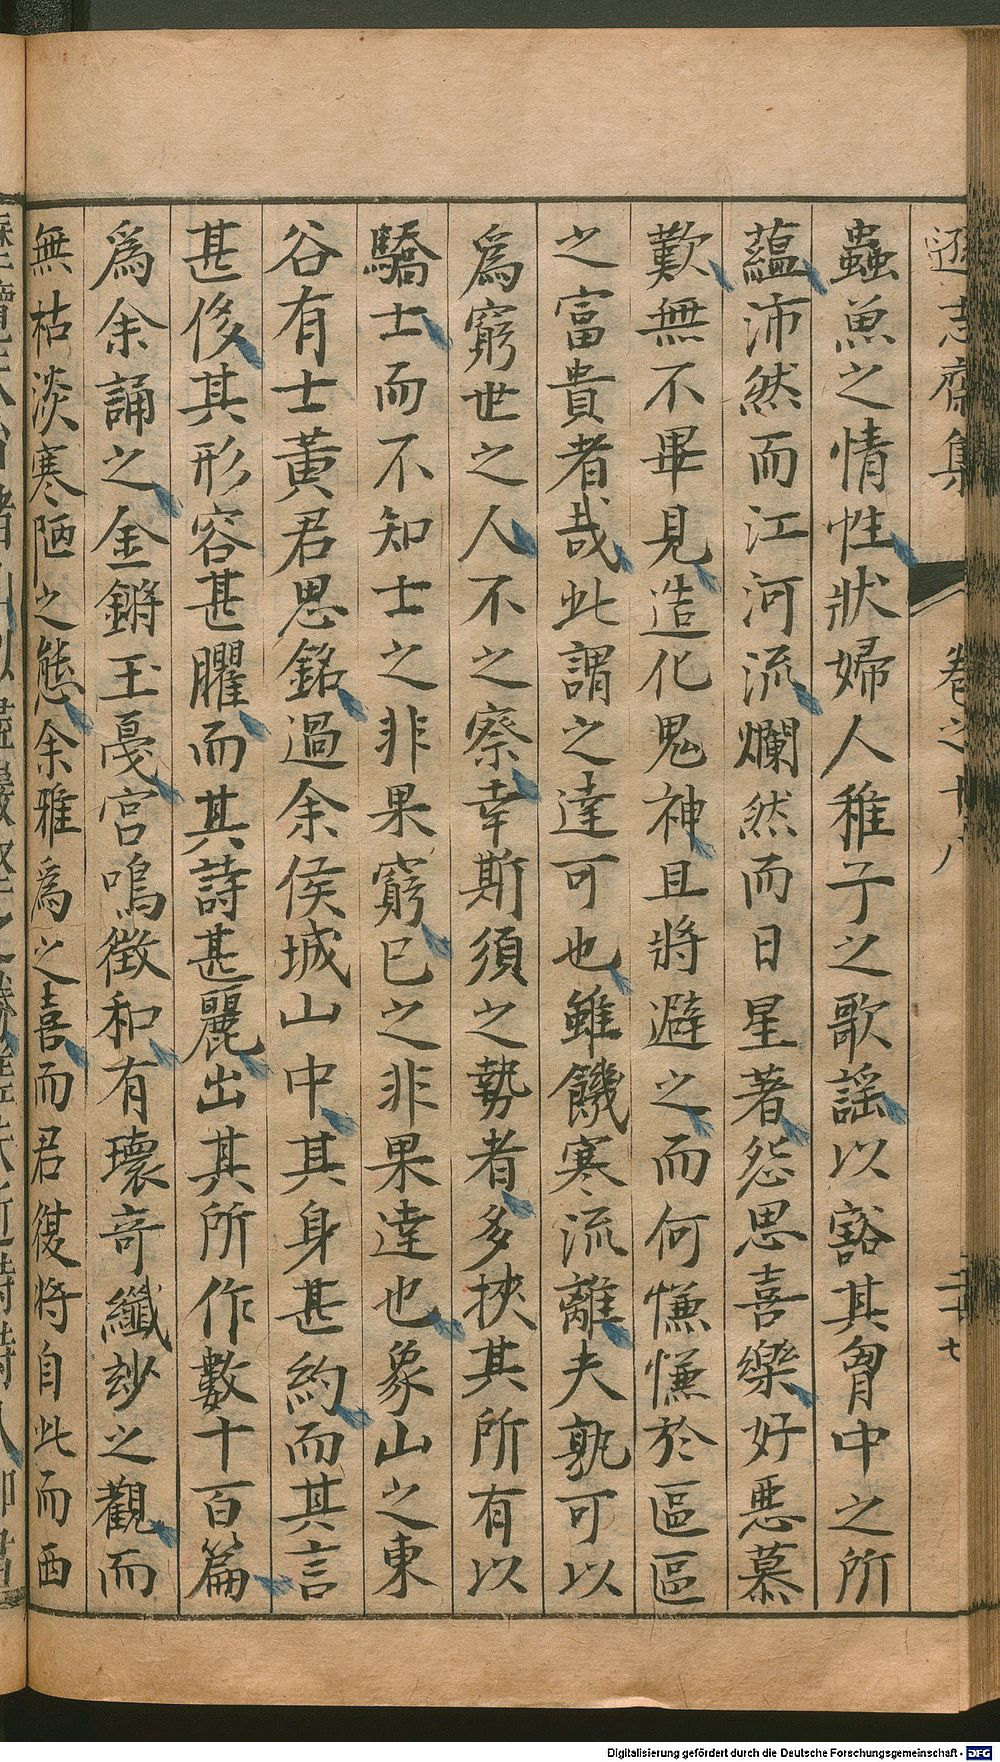 遜志齋集 卷之十八 二十七
蟲魚之情性狀婦人稚子之歌謡以豁其胷中之所
藴沛然而江河流爛然而日星著怨思喜樂好惡慕
歎無不畢見造化鬼神且將避之而何慊慊於區區
之富貴者哉此謂之達可也雖饑寒流離夫孰可以
爲窮世之人不之察幸斯須之勢者多挾其所有以
驕士而不知士之非果窮巳之非果達也象山之東
谷有士黄君思銘過余侯城山中其身甚約而其言
甚侈其形容甚臞而其詩甚麗出其所作數十百篇
爲余誦之金鏘玉戛宮鳴徵和有瓌竒纖玅之觀而
無枯淡寒陋之態余雅爲之喜而君復將自此而西
Digitalisierung gefördert durch die Deutsche Forschungsgemeinschaft - DFG